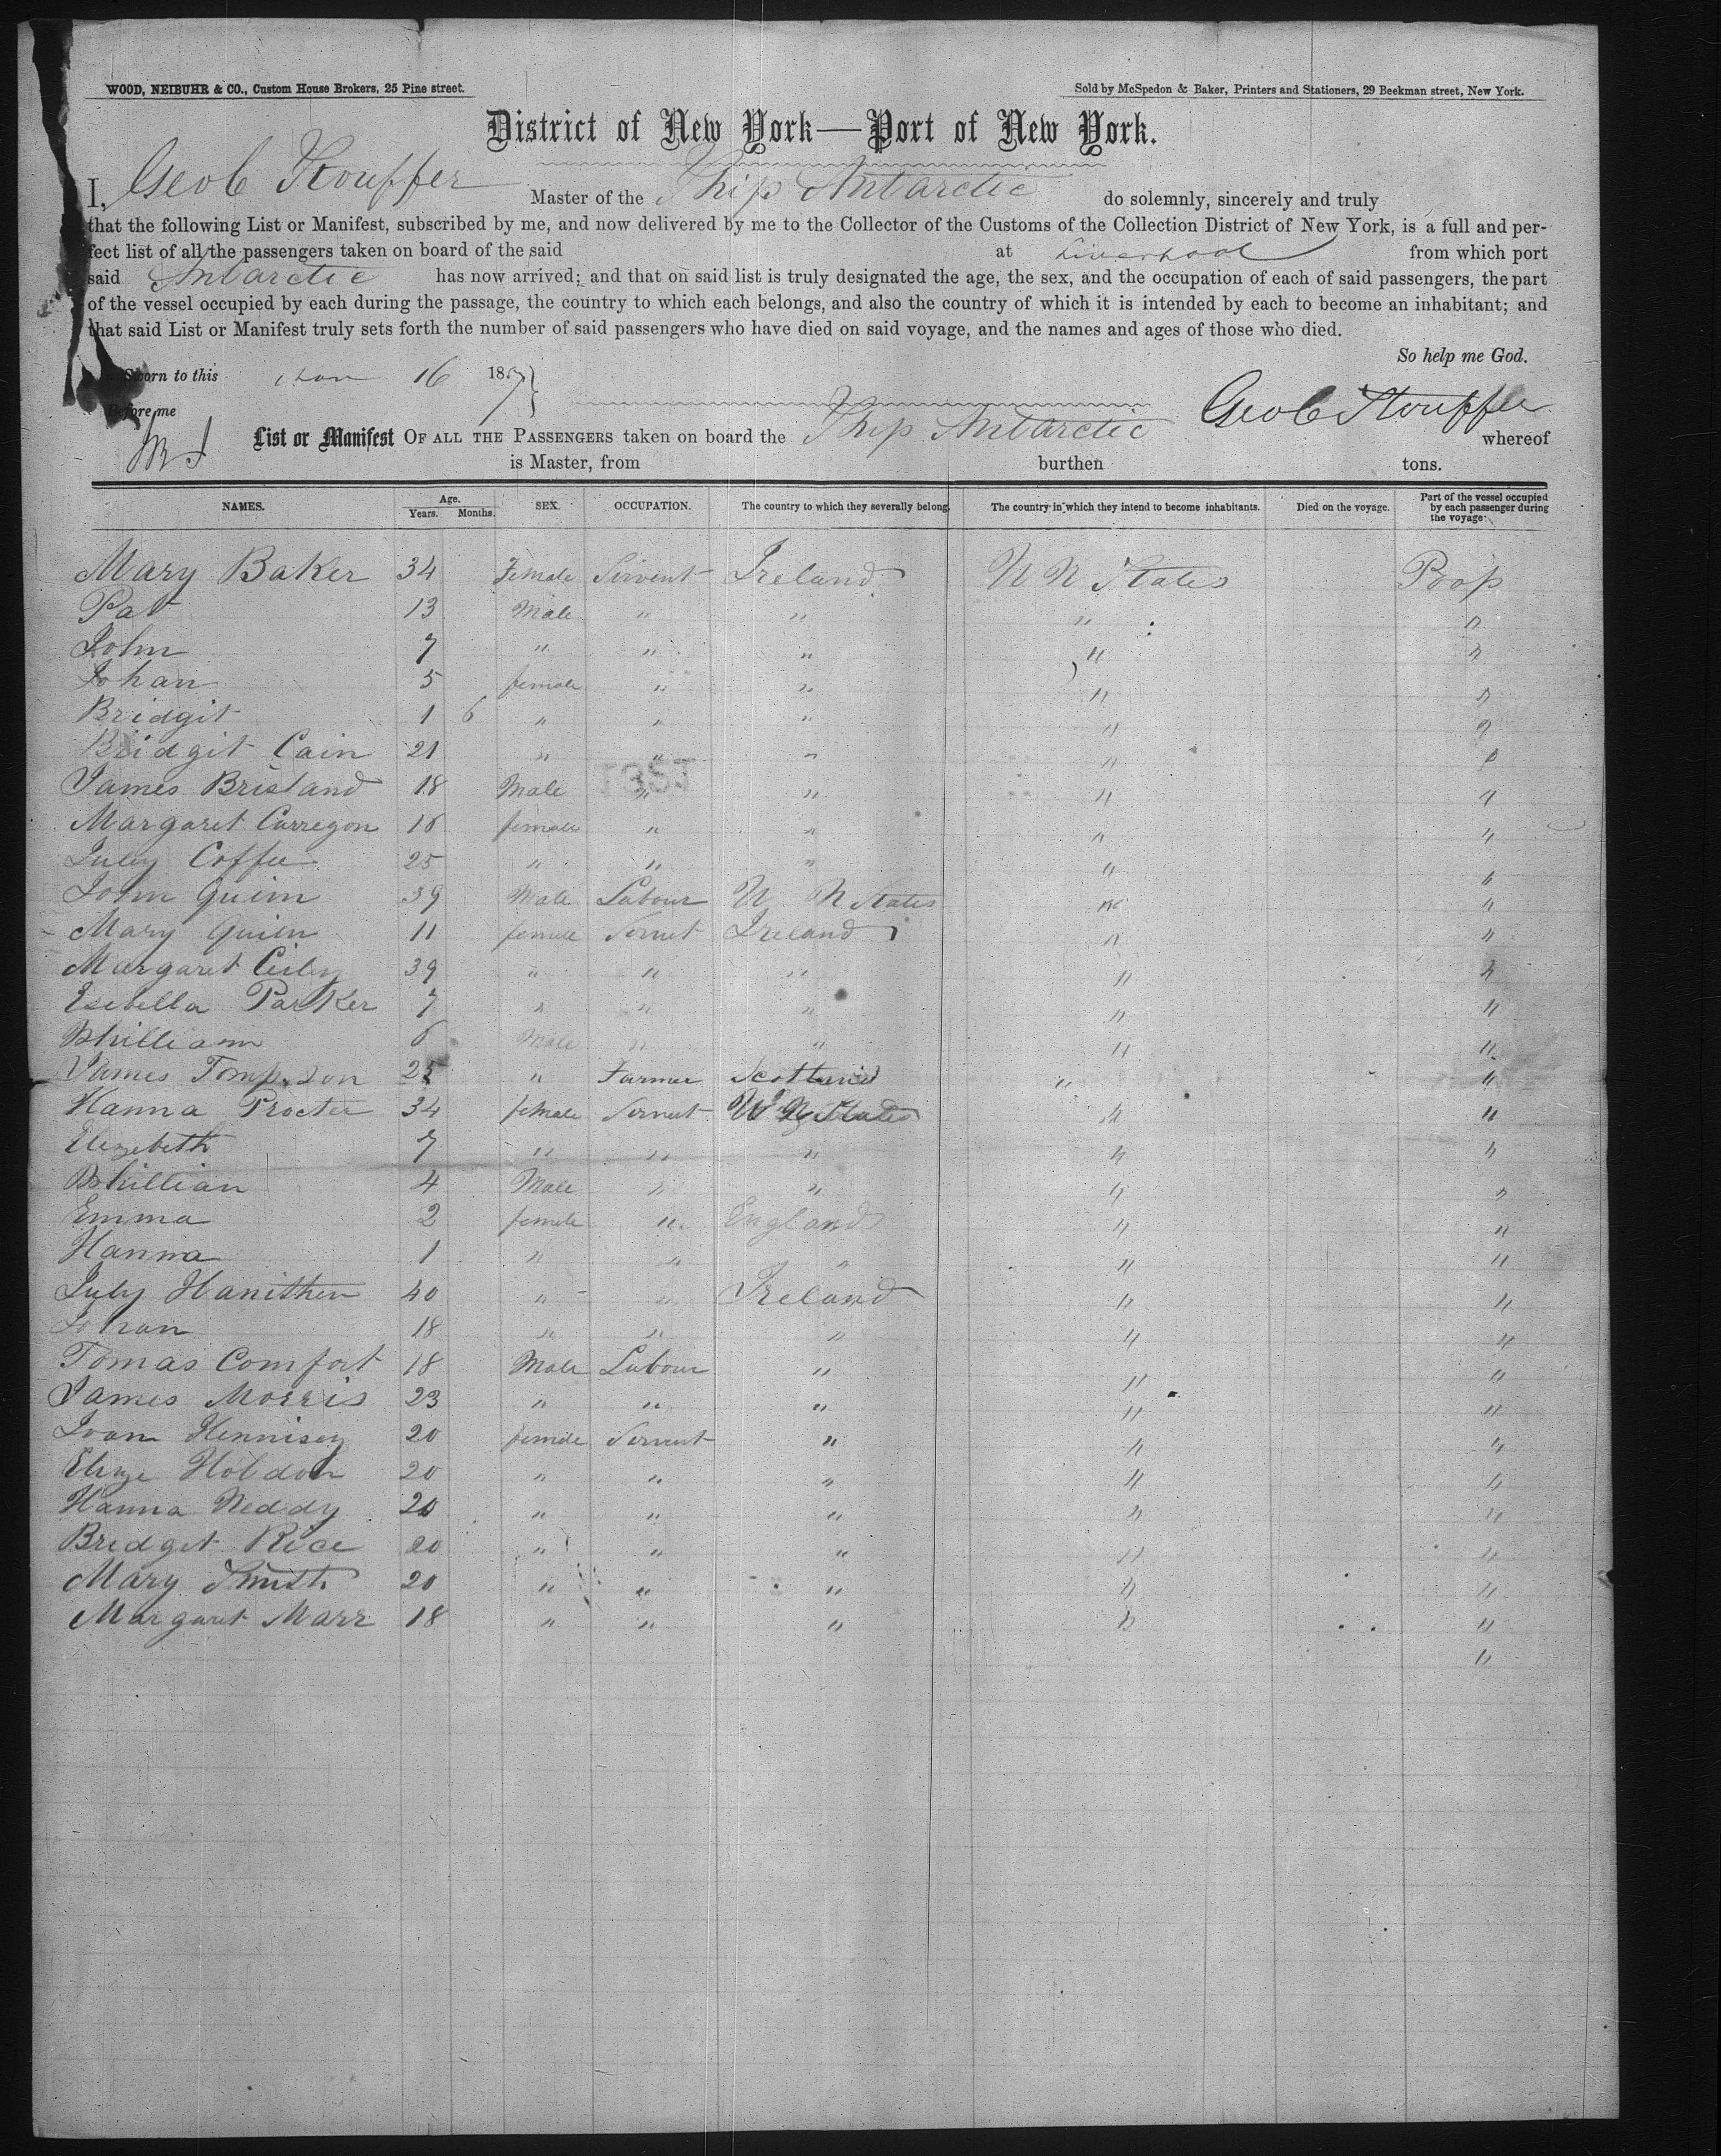 WOOD, NEIBUHR & CO., Custom House Brokers, 25 Pine street.
Sold by McSpedon & Baker, Printers and Stationers, 29 Beekman street, New York.
District of New York—Port of New York.
I, Geo C Stouffer Master of the Ship Antarctic do solemnly, sincerely and truly
that the following List or Manifest, subscribed by me, and now delivered by me to the Collector of the Customs of the Collection District of New York, is a full and per-
fect list of all the passengers taken on board of the said at Liverpool from which port
said Antarctic has now arrived; and that on said list is truly designated the age, the sex, and the occupation of each of said passengers, the part
of the vessel occupied by each during the passage, the country to which each belongs, and also the country of which it is intended by each to become an inhabitant; and
that said List or Manifest truly sets forth the number of said passengers who have died on said voyage, and the names and ages of those who died.
So help me God.
Sworn to this 16 185
Before me Geo C Stouffer
List or Manifest OF ALL THE PASSENGERS taken on board the Ship Antarctic whereof
is Master, from burthen tons.
NAMES. Age. Years. Months. SEX. OCCUPATION. The country to which they severally belong. The country in which they intend to become inhabitants. Died on the voyage. Part of the vessel occupied by each passenger during the voyage
Mary Baker 34 Female Servent Ireland U N States Poop
Pat 13 Male " " " "
John 7 " " " " "
Johan 5 female " " " "
Bridgit 1 6 " " " " "
Bridgit Cain 21 " " " " "
James Brisland 18 Male " " " "
Margaret Carregon 16 female " " " "
July Coffee 25 " " " " "
John Quinn 39 Male Labour U N States " "
Mary Quinn 11 female Servet Ireland " "
Margaret 39 " " " " "
Esebella Parker 7 " " " " "
Whilliam 6 Male " " " "
James Tompson 25 " Farmer Scotland " "
Hanna Procter 34 female Servent U N States " "
Elezebeth 7 " " " " "
Whillian 4 Male " " " "
Emma 2 female " England " "
Hanna 1 " " " " "
July Hanithen 40 " " Ireland " "
Johan 18 " " " " "
Tomas Comfort 18 Male Labour " " "
James Morris 23 " " " " "
Joan Hennisey 20 female Servent " " "
Elize Holdon 20 " " " " "
Hanna Neddy 20 " " " " "
Bredget Rice 20 " " " " "
Mary Smith 20 " " " " "
Margaret Marr 18 " " " " "
"